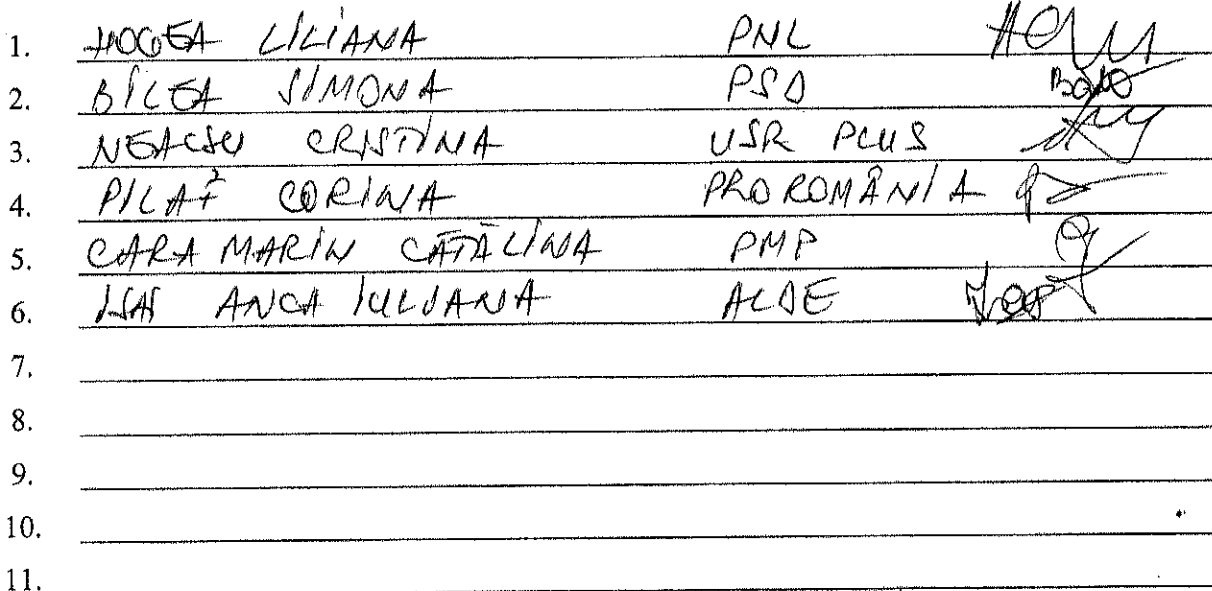 1. HOGEA LILIANA PNL
2. BÎLEA SIMONA PSD
3. NEACSU CRISTINA USR PLUS
4. PILAT CORINA PRO ROMÂNIA
5. CARA MARIN CĂTĂLINA PMP
6. ANCA IULIANA ALDE
7.
8.
9.
10.
11.